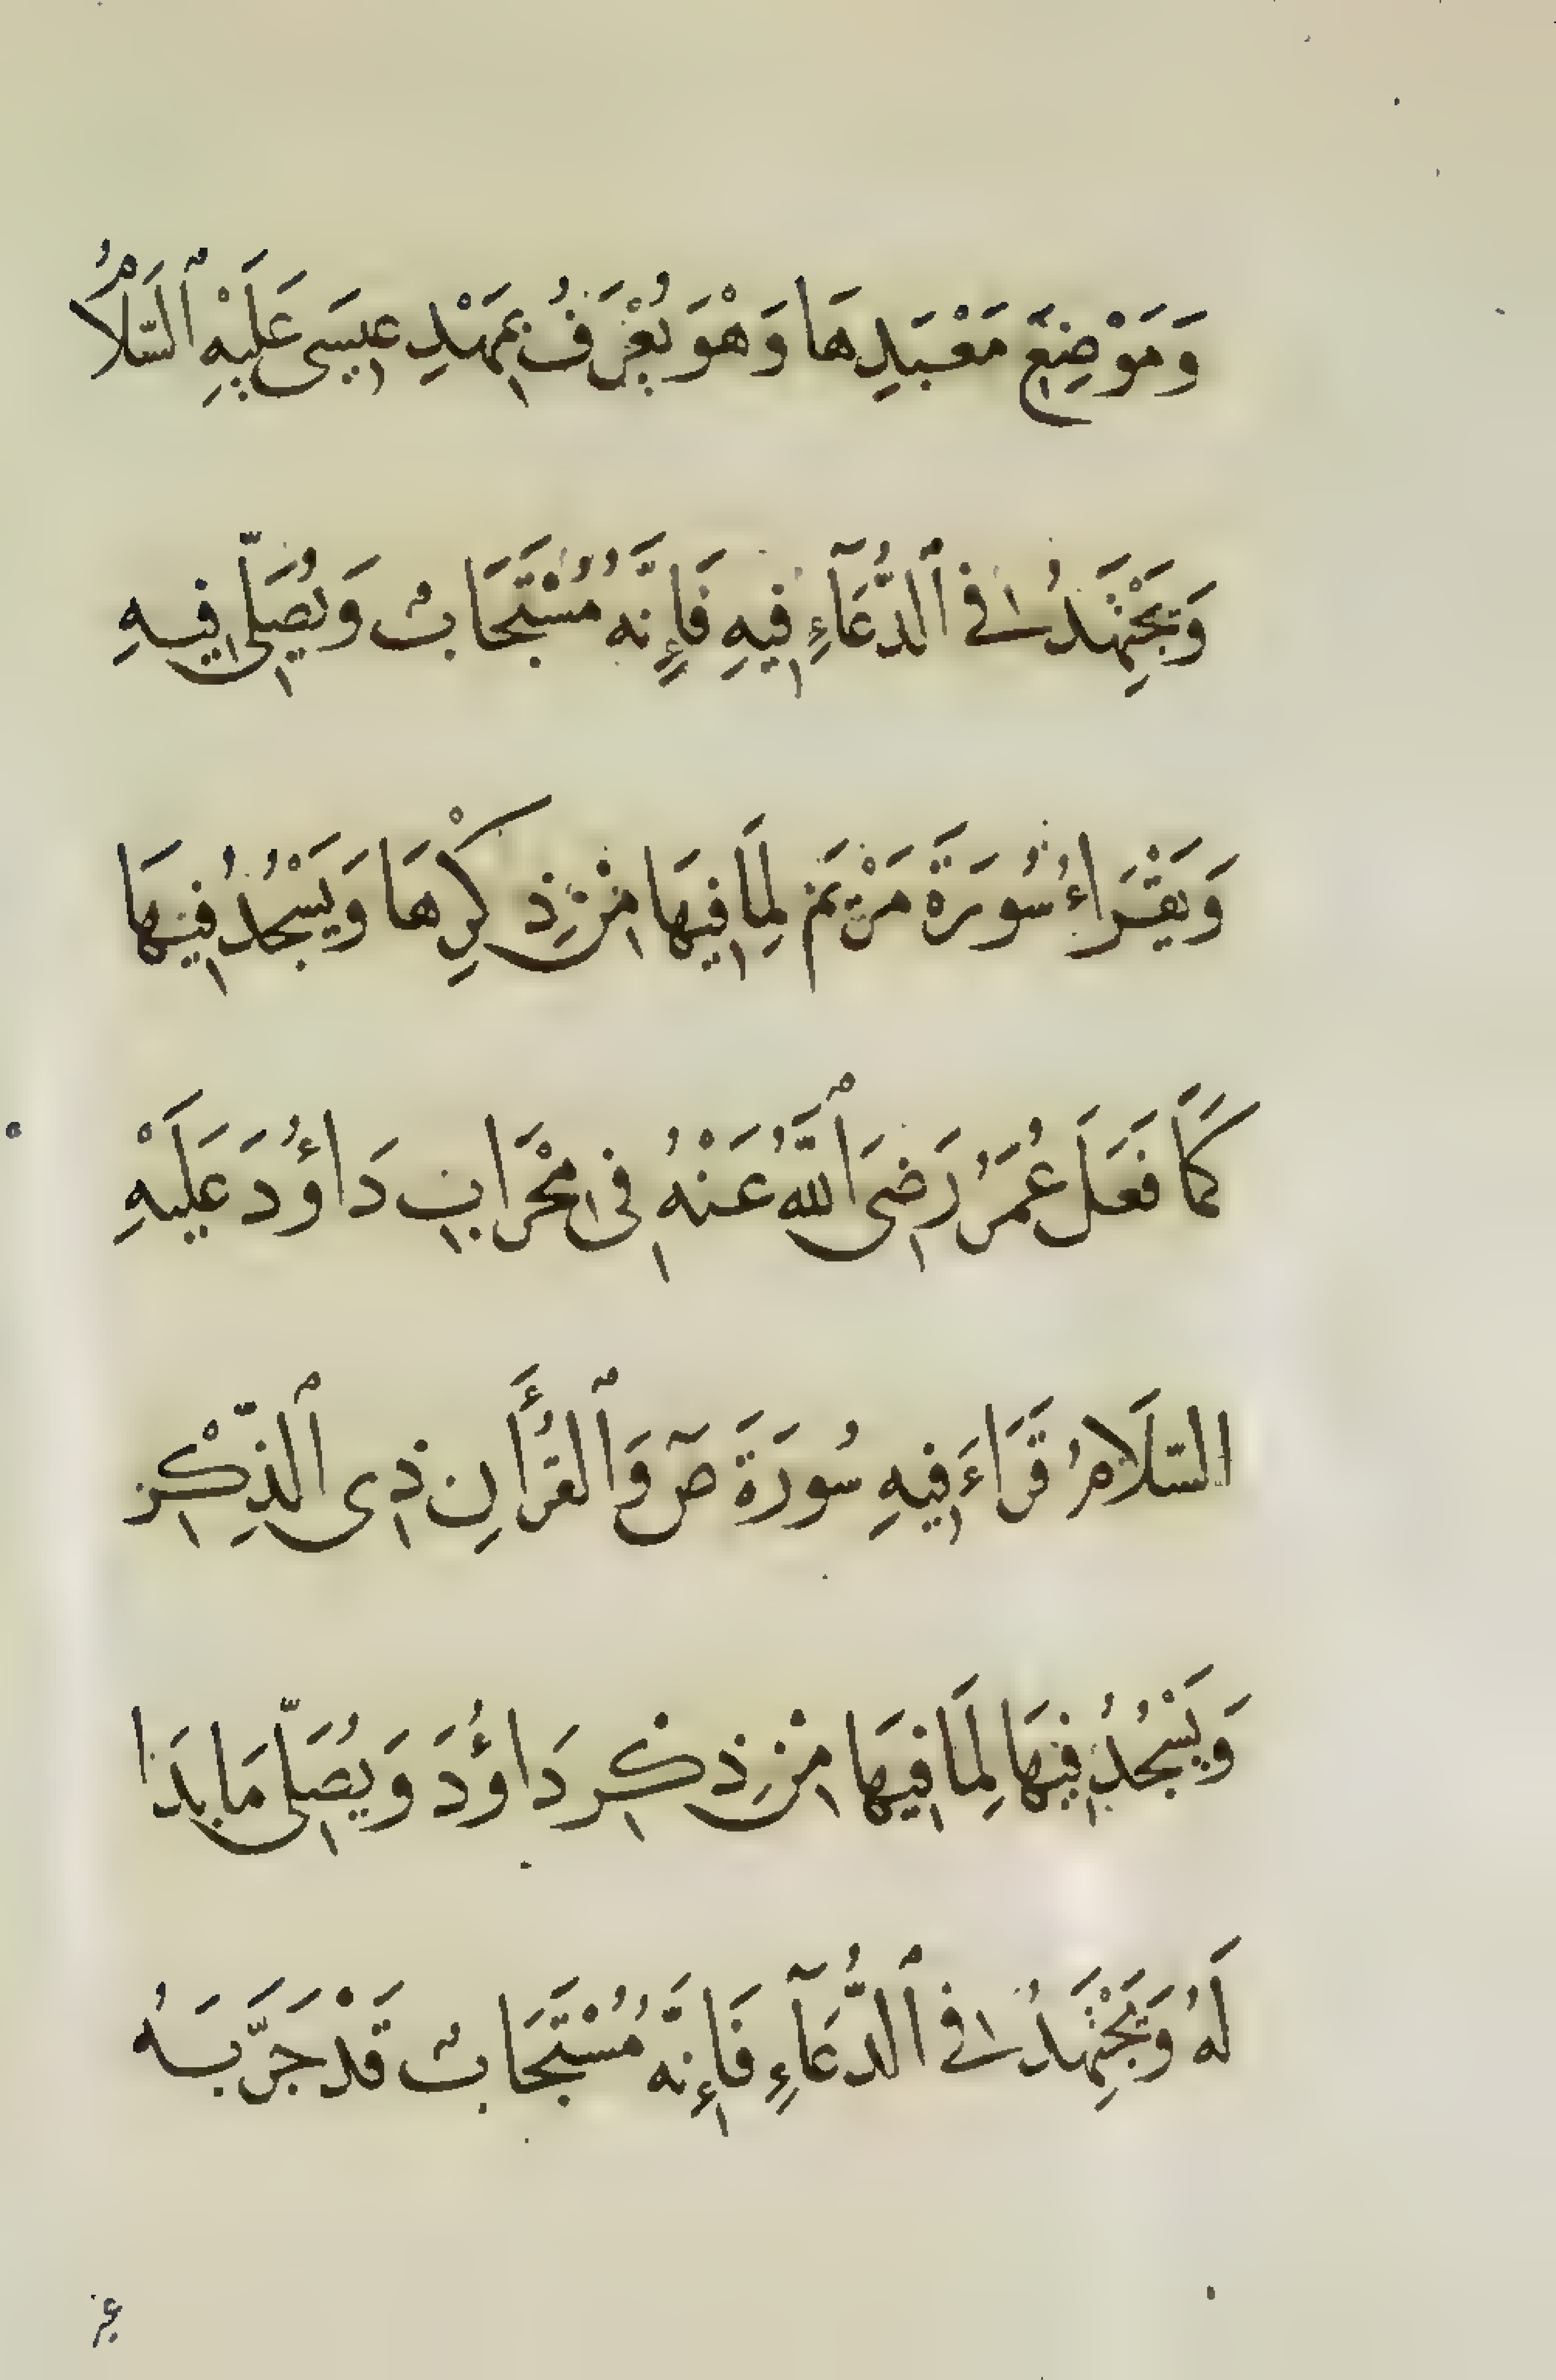 وَمَوْضِعَ مَعْبَدِهَا وَهْوَ يُعْرَفُ بِمَهْدِ عِيسَى عَلَيْهِ ٱلسَّلَامُ
وَيَجْتَهِدُ فِي ٱلدُّعَآءِ فِيهِ فَإِنَّهُ مُسْتَجَابٌ وَيُصَلِّي فِيهِ
وَيَقْرَاءُ سُورَةَ مَرْيَمَ لِمَا فِيهَا مِنْ ذِكْرِهَا وَيَسْجُدُ فِيهَا
كَمَا فَعَلَ عُمَرُ رَضِىَ ٱللَّهُ عَنْهُ فِى مِحْرَابِ دَاؤُدَ عَلَيْهِ
السَّلَامُ قَرَاءَ فِيهِ سُورَةَ صٓ وَٱلقُرْأَنِ ذِى ٱلذِّكْرِ
وَيَسْجُدُ فِيهَا لِمَا فِيهَا مِنْ ذِكْرِ دَاؤُدَ وَيُصَلِّى مَا بَدَا
لَهُ وَيَجْتَهِدُ فِي ٱلدُّعَآءِ فَإِنَّهُ مُسْتَجَابٌ قَدْ جَرَّبَهُ